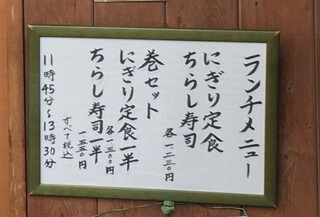 ランチメニュー
にぎり定食
ちらし寿司
各一、二三〇円
巻セット
にぎり定食一半
各一、五〇〇円
ちらし寿司一半
一、五五〇円
すべて税込
11時45分～13時30分